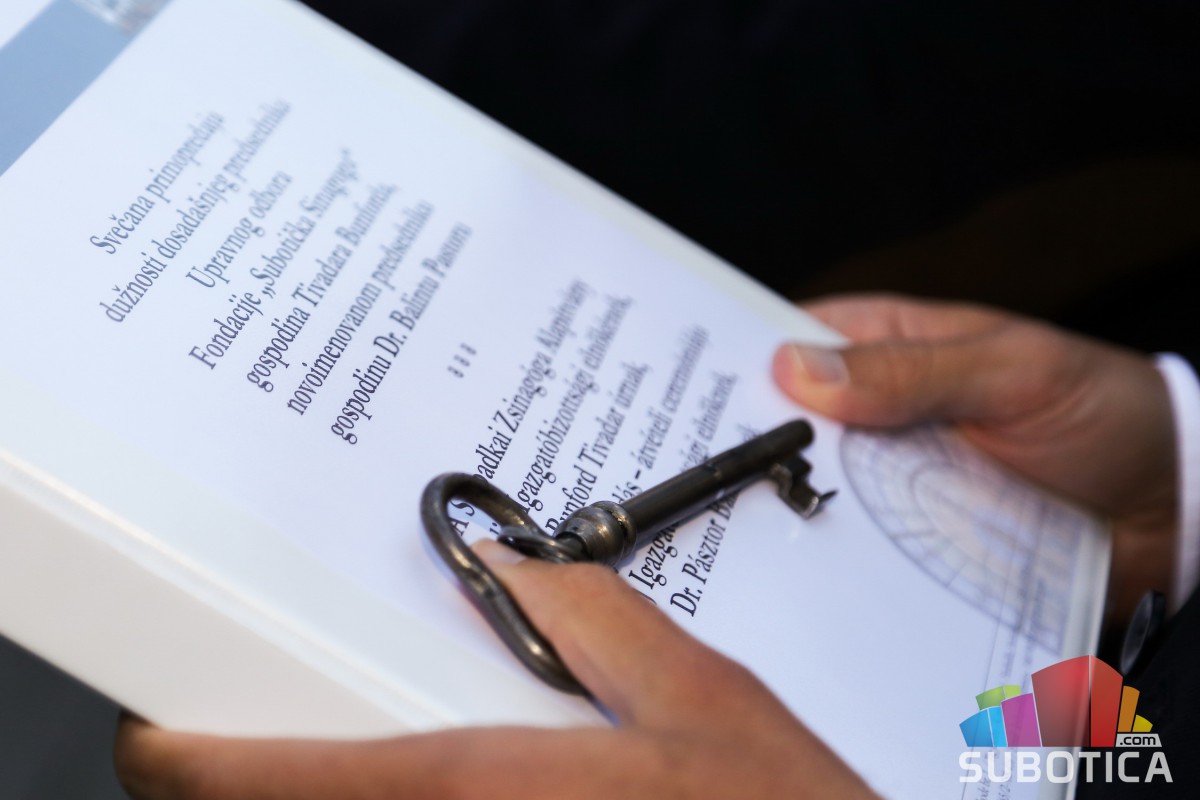 Svečana primopredaju
dužnosti dosadašnjeg predsednika
Upravnog odbora
Fondacije „Subotička Sinagoga“
gospodina Tivadara Bunforda,
novoimenovanom predsedniku
gospodinu Dr. Balintu Pastoru
A Szabadkai Zsinagóga Alapítvány
Igazgatóbizottsági elnökének,
Bunford Tivadar úrnak,
– átvételi ceremóniája
Igazga
sági elnöknek,
Dr. Pásztor
.com
SUBOTICA